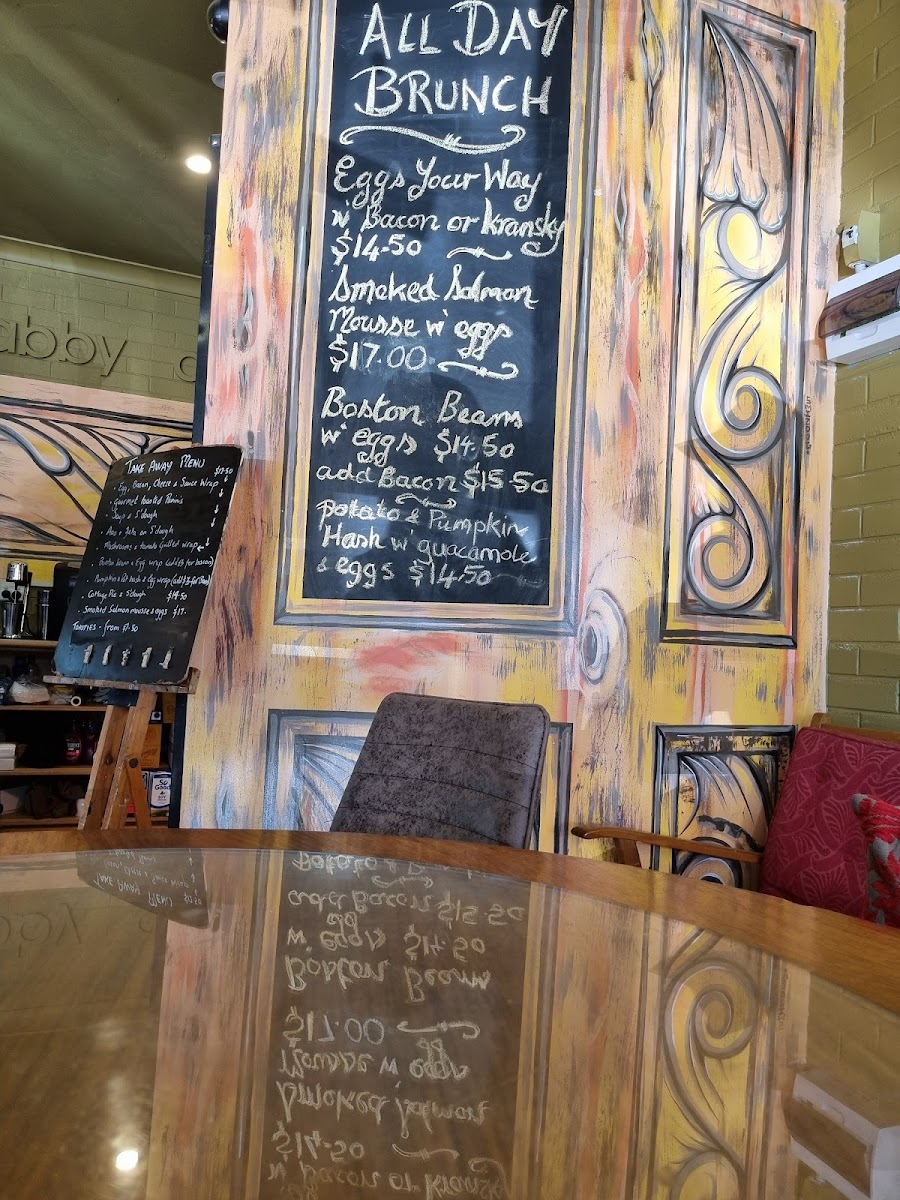 ALL DAY
BRUNCH
Eggs Your Way
w' Bacon or Kransky
$14-50
Smoked Salmon
Mousse w' eggs
$17.00
Boston Beans
w' eggs $14.50
add Bacon $15-50
Potato & Pumpkin
Hash w' guacamole
& eggs $14-50
abby
TAKE AWAY MENU
· Egg, Bacon, Cheese & Sauce Wrap
· Gourmet toasted Paninis
· Soup & S'dough
· Avo & feta on S'dough
· Mushrooms & tomato Grilled wrap
Boston bean & Egg wrap
Pumpkin & Pot hash & egg wrap
Cottage Pie & S'dough $14.50
· Smoked Salmon mousse & eggs $17.
TOASTIES - from
So
Good